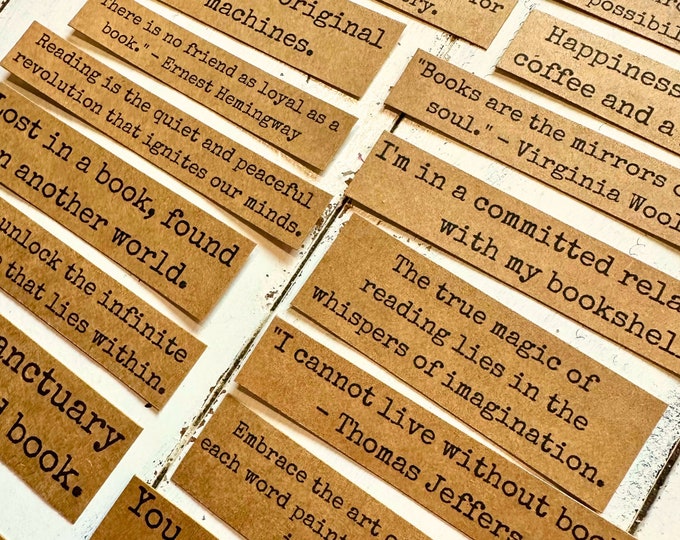 original
machines.
There is no friend as loyal as a
book." – Ernest Hemingway
Reading is the quiet and peaceful
revolution that ignites our minds.
Lost in a book, found
in another world.
unlock the infinite
that lies within.
sanctuary
book.
You
for
possibili
Happiness
coffee and a
"Books are the mirrors o
soul." – Virginia Wool
I'm in a committed rela
with my bookshel
The true magic of
reading lies in the
whispers of imagination.
"I cannot live without boo
– Thomas Jeffers
Embrace the art o
each word paint